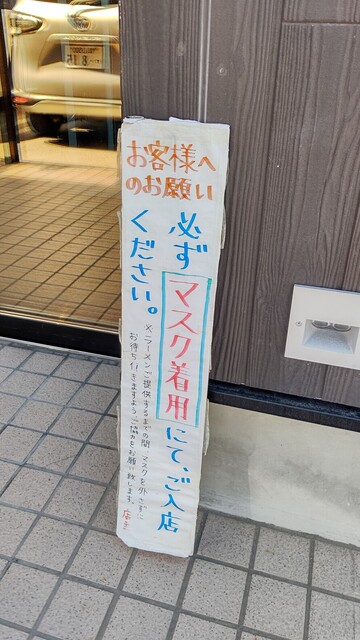 お客様へ
のお願い
必ずマスク着用にて、ご入店
ください。
※ラーメンご提供するまでの間、マスクを外さずに
お待ち頂きますようご協力をお願い致します。店主